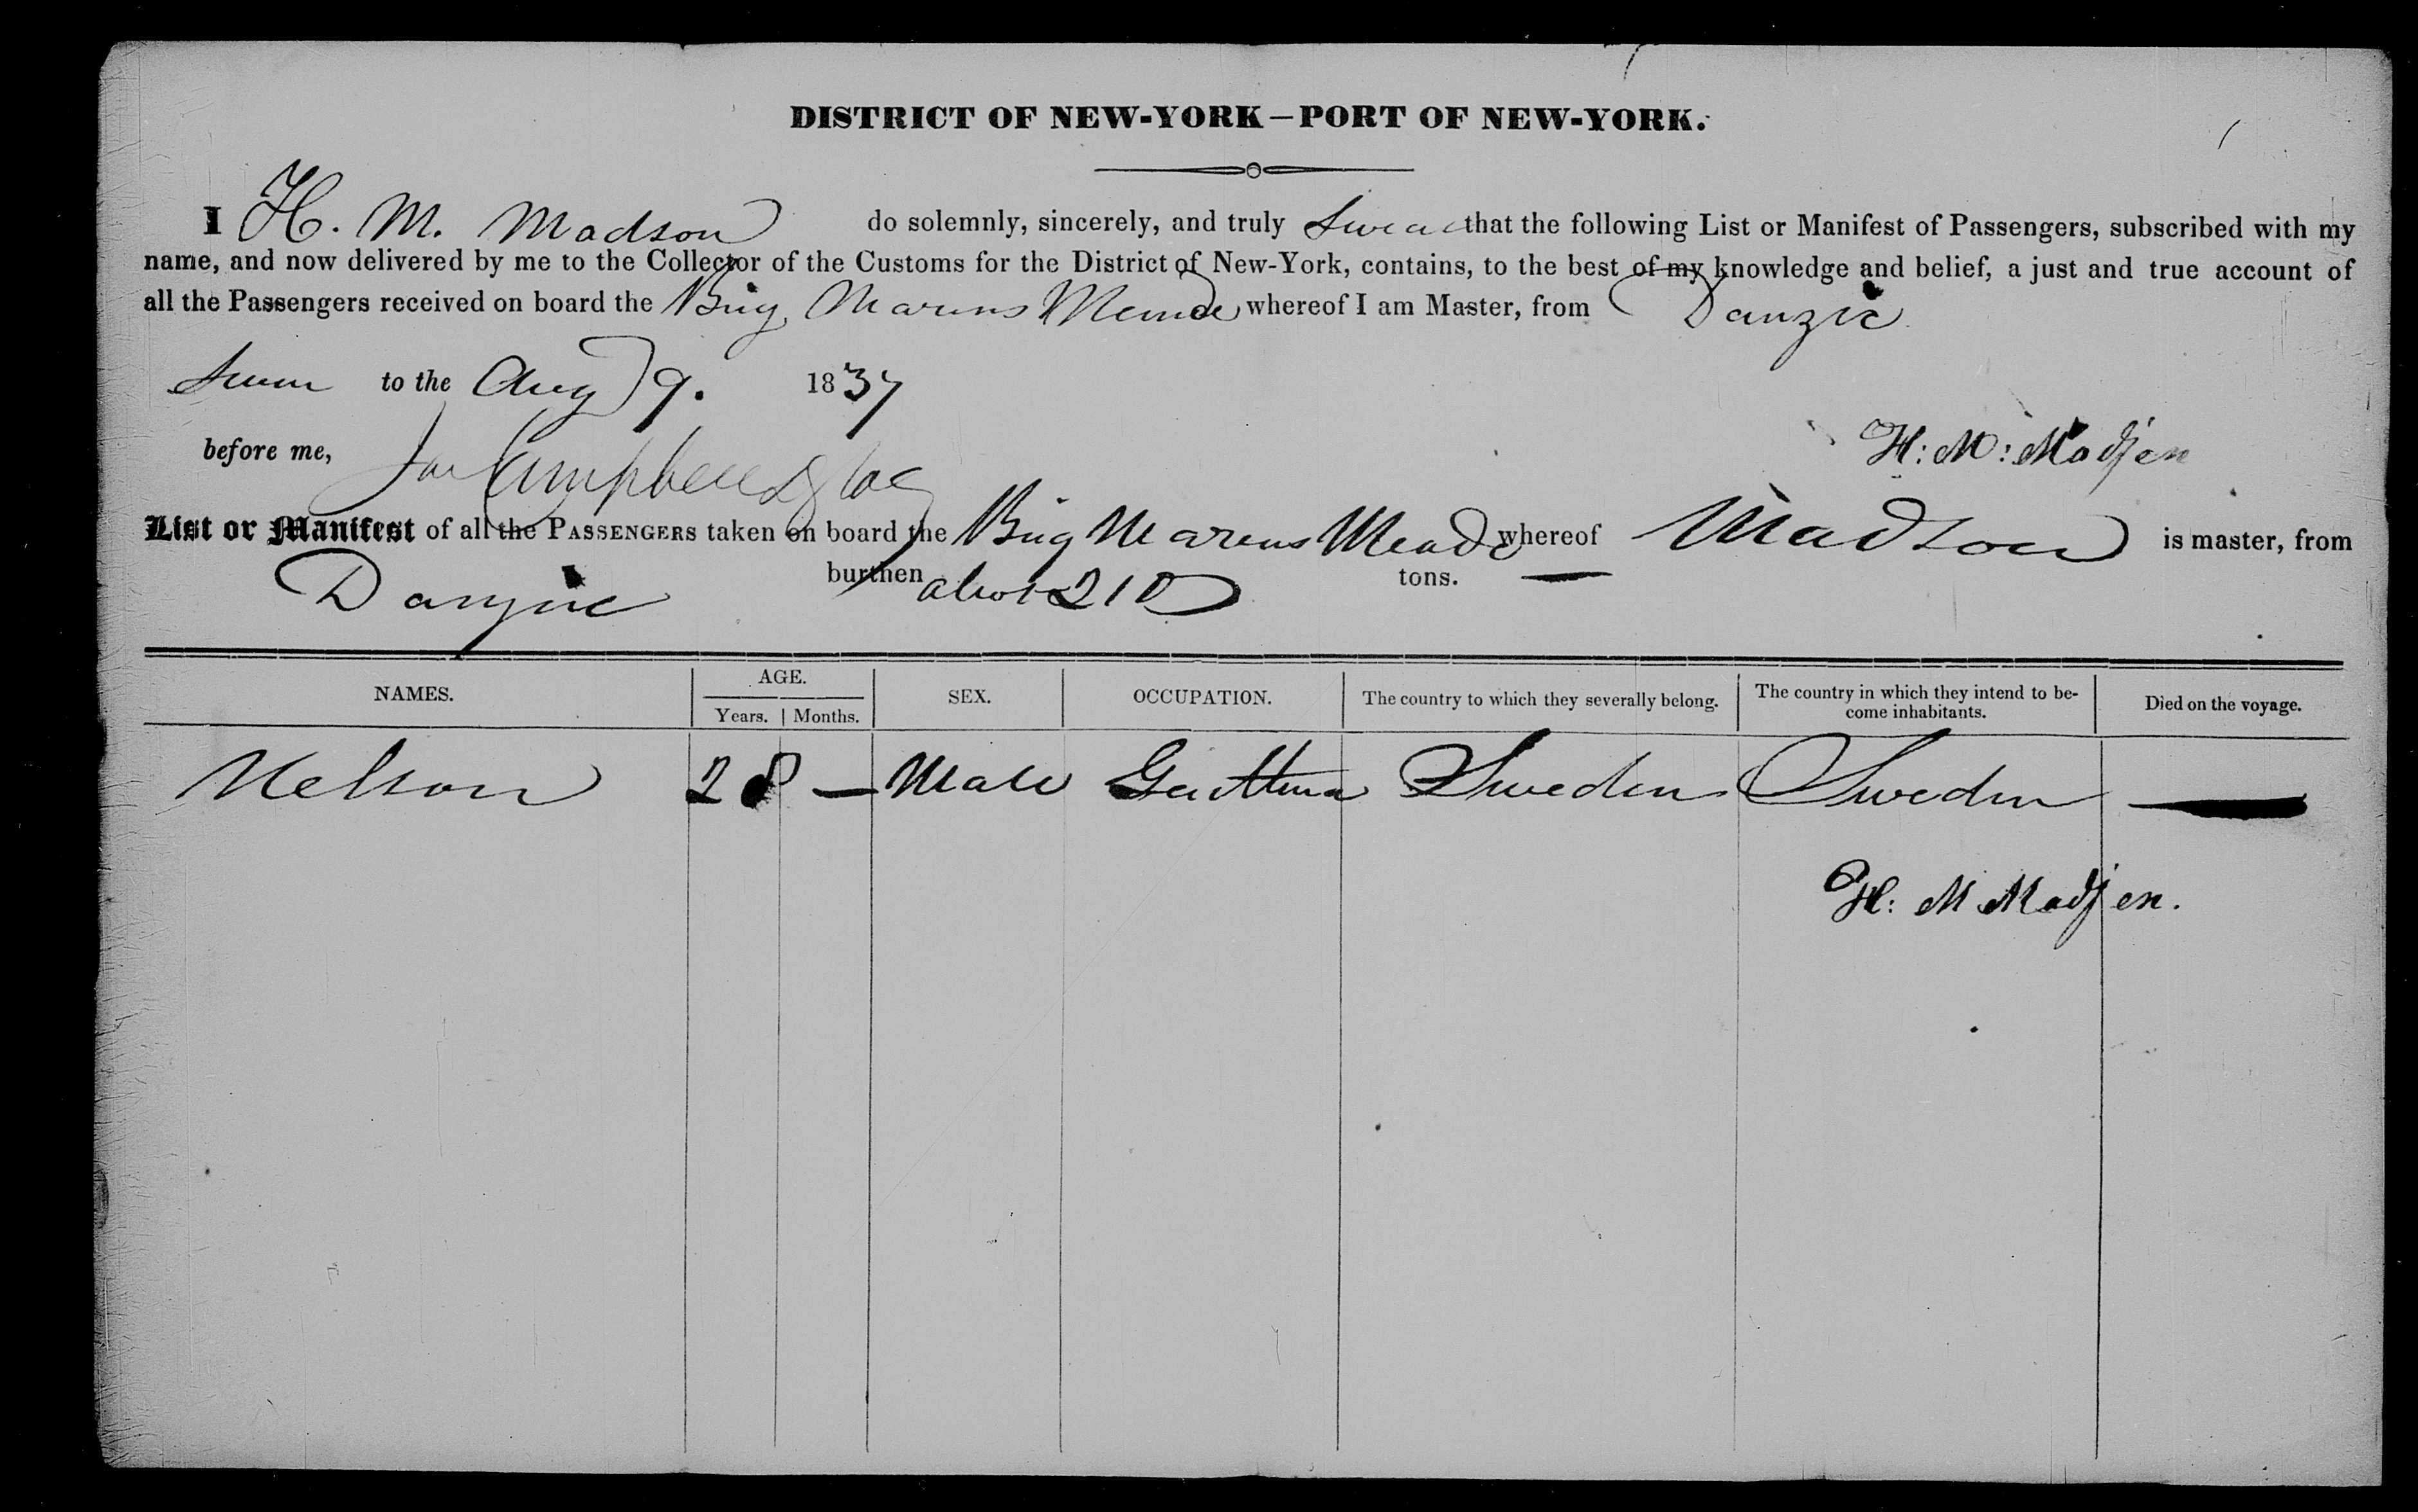 DISTRICT OF NEW-YORK—PORT OF NEW-YORK.
I H. M. Madson do solemnly, sincerely, and truly Swear that the following List or Manifest of Passengers, subscribed with my
name, and now delivered by me to the Collector of the Customs for the District of New-York, contains, to the best of my knowledge and belief, a just and true account of
all the Passengers received on board the Brig Marcus whereof I am Master, from Danzic
Sworn to the Aug 9. 1837
before me, Campbell
H: M: Madsen
List or Manifest of all the PASSENGERS taken on board the Brig Marcus whereof Madson is master, from
Danzic burthen about 210 tons.
NAMES. AGE. SEX. OCCUPATION. The country to which they severally belong. The country in which they intend to be-come inhabitants. Died on the voyage.
Years. Months.
Nelson 28 — Male Gentleman Sweden Sweden —
H: M Madsen.